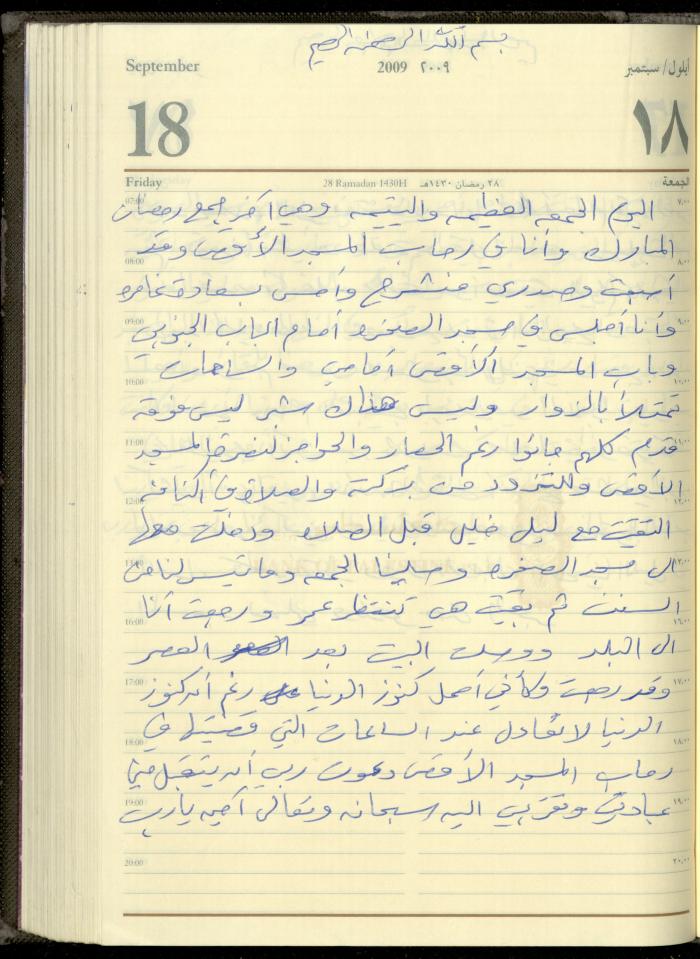 بسم الله الرحمن الرحيم
September 2009 ٢٠٠٩ أيلول/ سبتمبر
18 ١٨
Friday 28 Ramadan 1430H ٢٨ رمضان ١٤٣٠هـ الجمعة
07:00 اليوم الجمعه العظيمه واليتيمه وهي آخر جمع رمضان ٧,٠٠
المبارك وأنا في رحاب المسجد الأقصى وقد
08:00 ٨,٠٠
أصبحت وصدري منشرح وأحس بسعادة غامره
09:00 وأنا أجلس في مسجد الصخره أمام الباب الجنوبي ٩,٠٠
وباب المسجد الأقصى أمامي والساحات
10:00 ١٠,٠٠
تمتلأ بالزوار وليس هناك شبر ليس فوقه
11:00 قدم كلهم جاءوا رغم الحصار والحواجز لنصرة المسجد ١١,٠٠
الأقصى وللتزود من بركته والصلاة في أكنافه
12:00 ١٢,٠٠
التقيت مع ليلى خليل قبل الصلاه ودخلت معها
الى مسجد الصخره وصلينا الجمعه وما تيسر لنا من
السنن ثم بقيت هي تنتظر عمر ورجعت أنا
16:00 ١٦,٠٠
الى البلد ووصلت البيت بعد العصر
17:00 وقد رجعت وكأني أحمل كنوز الدنيا رغم أن كنوز ١٧,٠٠
الدنيا لا تعادل عند الساعات التي قضيتها في
18:00 ١٨,٠٠
رحاب المسجد الأقصى دعوت ربي أن يتقبل مني
19:00 عبادتي وتقربي اليه سبحانه وتعالى آمين يا رب ١٩,٠٠
20:00 ٢٠,٠٠